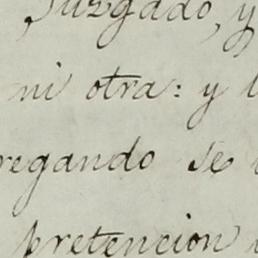 Juzgado, y
ni otra: y
regando se
pretencion